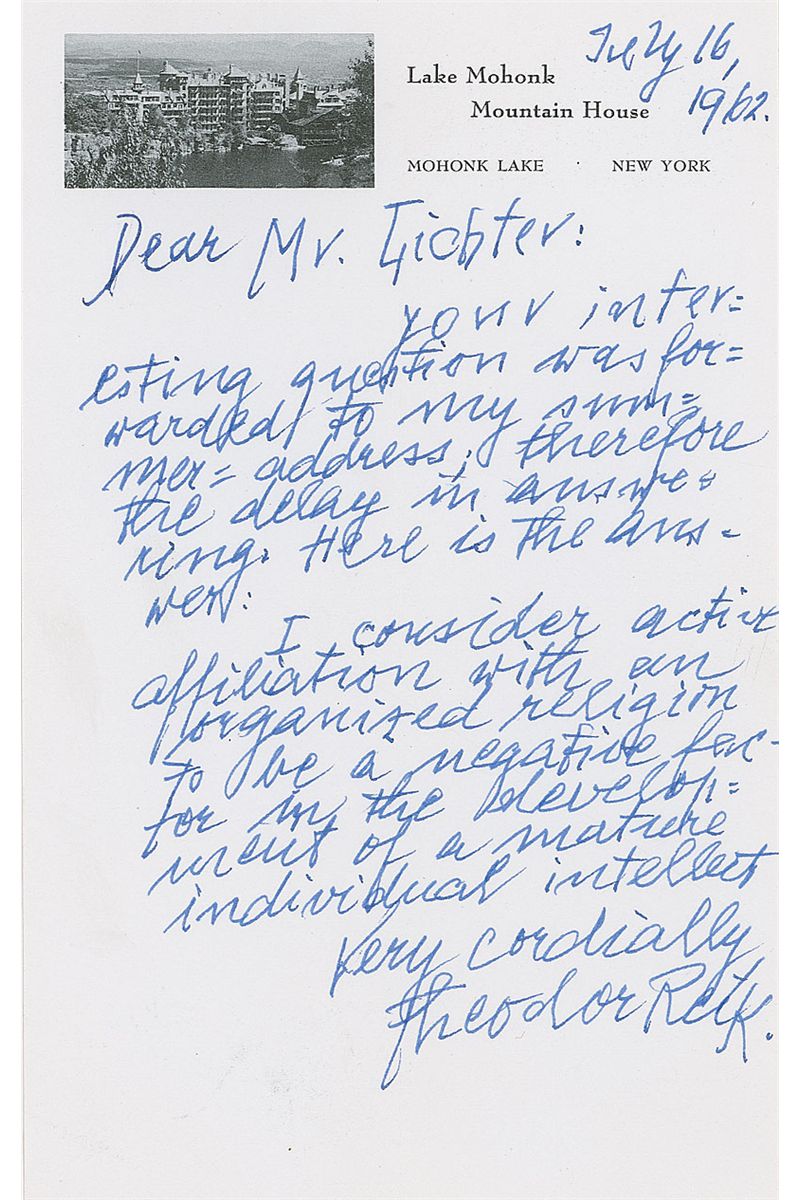 Lake Mohonk
Mountain House
MOHONK LAKE · NEW YORK
July 16,
1962.
Dear Mr. Lichter:
your inter=
esting question was for=
warded to my sum=
mer= address; therefore
the delay in answe=
ring. Here is the ans-
wer:
I consider active
affiliation with an
organized religion
to be a negative fac-
tor in the develop=
ment of a mature
individual intellect
Very cordially
Theodor Reik.